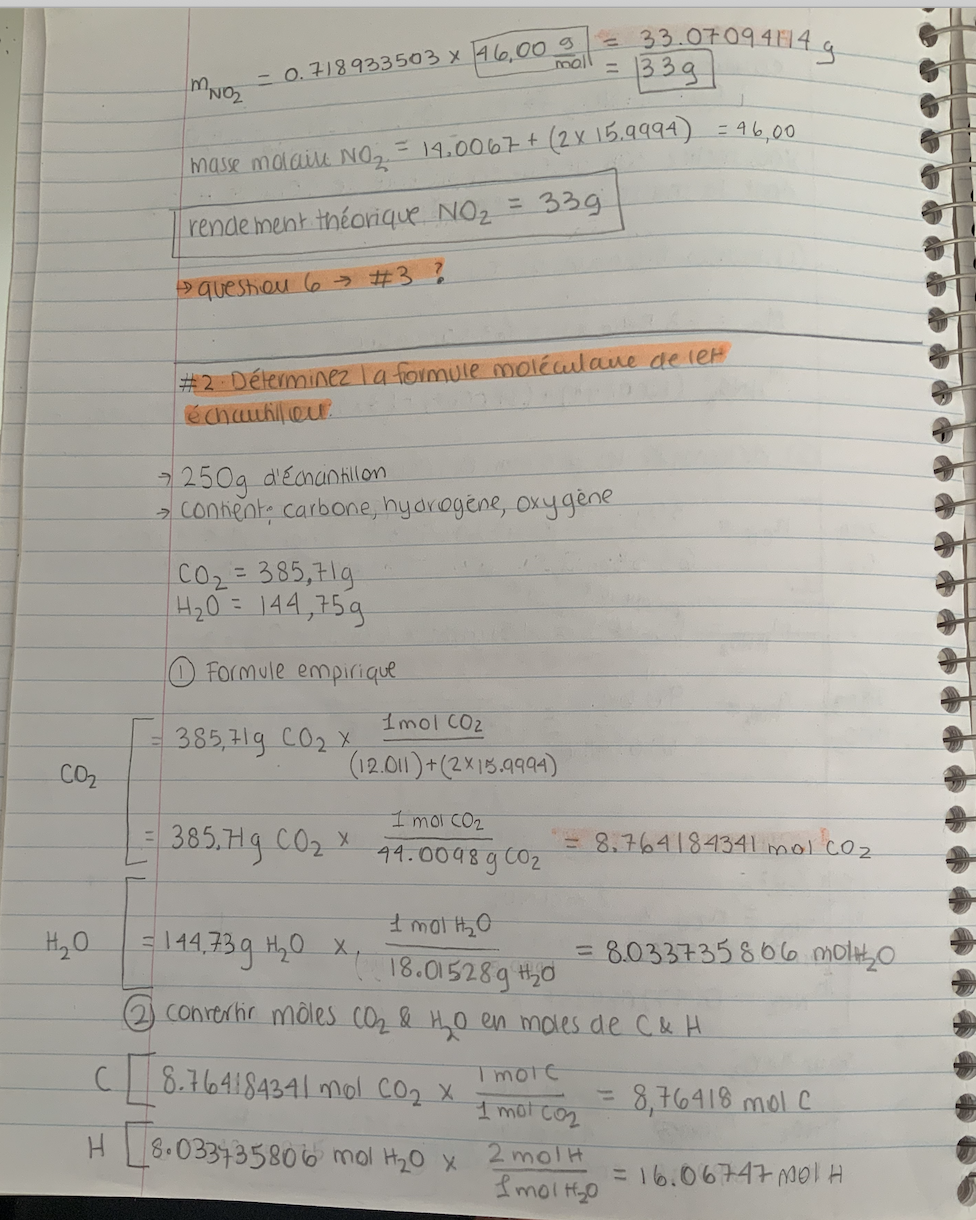 m NO₂ = 0.718933503 x 46,00 g/mol = 33.07094114 g
= 33g
masse molaire NO₂ = 14.0067 + (2x15.9994) = 46,00
rendement théorique NO₂ = 33g
→ question 6 → #3 ?
#2. Déterminez la formule moléculaire de cet
échantillon.
→ 250g d'échantillon
→ contient: carbone, hydrogène, oxygène
CO₂ = 385,71g
H₂O = 144,75g
① Formule empirique
CO₂
= 385,71g CO₂ x 1 mol CO₂ / (12.011)+(2x15.9994)
= 385,71g CO₂ x 1 mol CO₂ / 44.0098 g CO₂ = 8.764184341 mol CO₂
H₂O
= 144,73g H₂O x 1 mol H₂O / 18.01528g H₂O = 8.033735806 mol H₂O
② convertir môles CO₂ & H₂O en moles de C & H
C 8.764184341 mol CO₂ x 1 mol C / 1 mol CO₂ = 8,76418 mol C
H 8.033735806 mol H₂O x 2 mol H / 1 mol H₂O = 16.06747 mol H